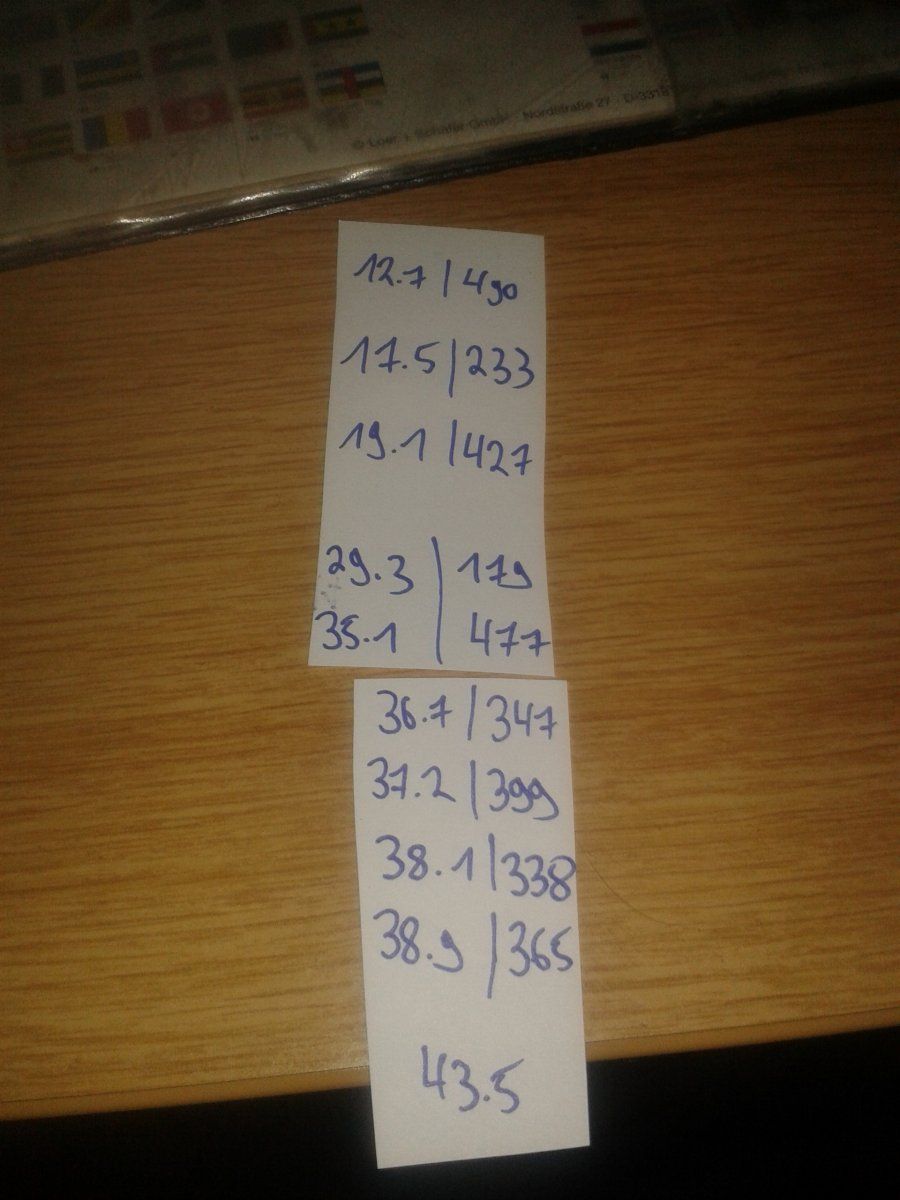 © Loer + Schäfer GmbH · Nordstraße 27 · D-3318
12.7 | 490
17.5 | 233
19.1 | 427
29.3 | 179
35.1 | 477
36.7 | 347
37.2 | 399
38.1 | 338
38.9 | 365
43.5